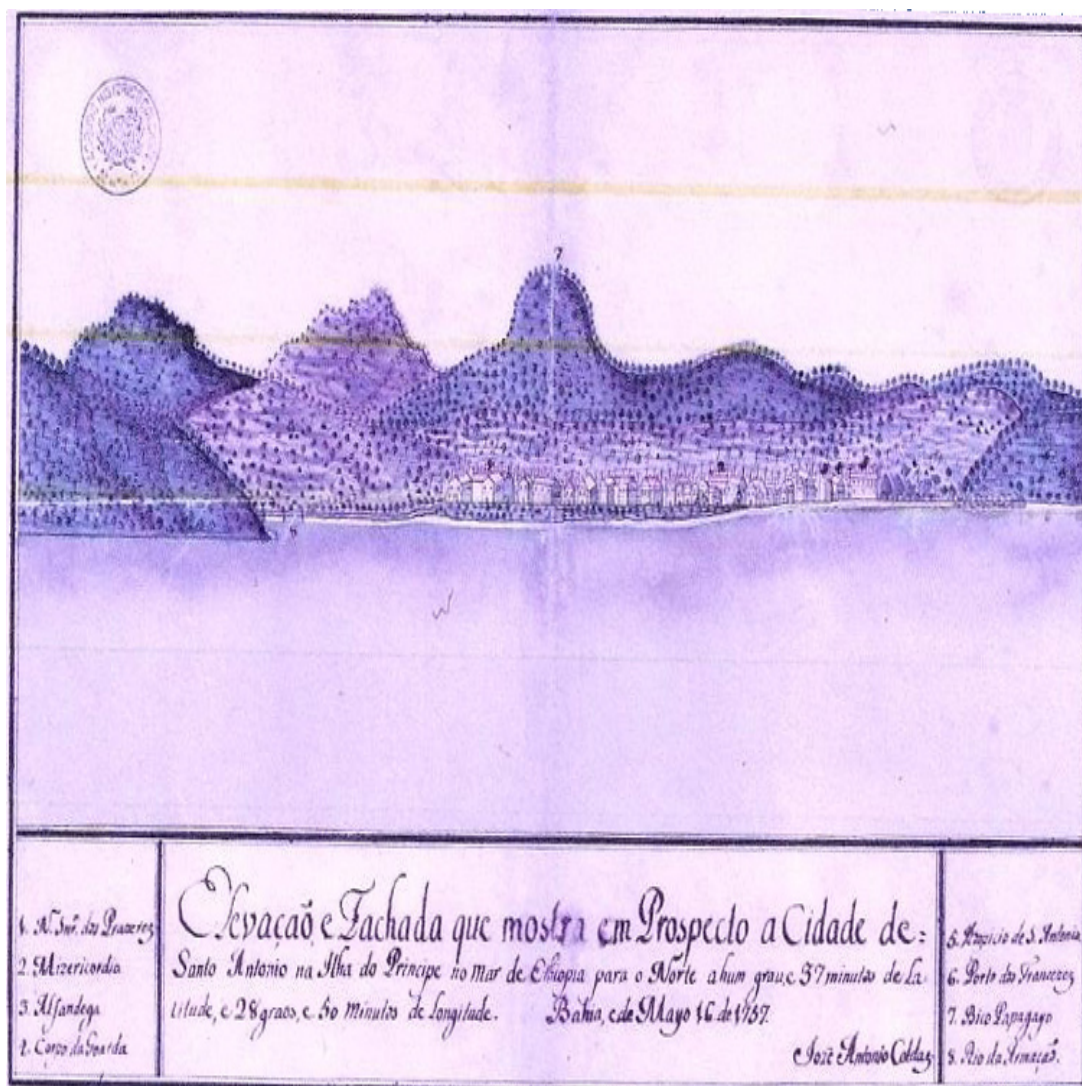 7
1. N. Snr.ª dos Prazerez
2. Mizericordia
3. Alfandega
4. Corpo da Guarda
Elevação e Fachada que mostra em Prospecto a Cidade de:
Santo Antonio na Ilha do Principe no mar de Ethiopia para o Norte a hum grau, e 37 minutos de La-
titude, e 28 graos, e 50 Minutos de Longitude. Bahia, e de Mayo 16 de 1757.
Jozè Antonio Caldas
5. Hospicio de S. Antonio
6. Porto dos Francezes
7. Bico Papagayo
8. Rio da Armação.